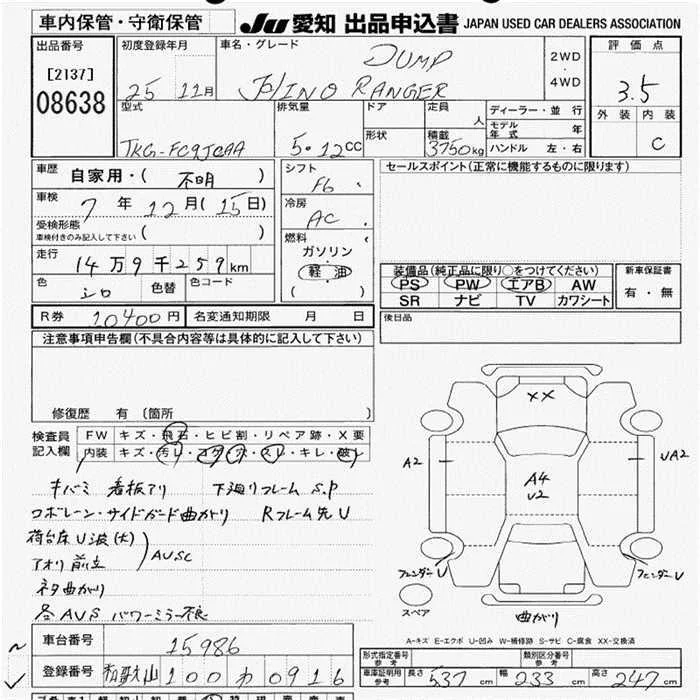 車内保管・守衛保管 JU 愛知 出品申込書 JAPAN USED CAR DEALERS ASSOCIATION
出品番号 初度登録年月 車名・グレード DUMP 2WD ・ 4WD 評価点
[2137] 25 11月 RANGER 3.5
08638 型式 排気量 ドア 定員 人 ディーラー・並行 外装 内装
形状 積載 モデル年式 年 C
TKG-FC9JCAA 5.12CC 3750kg ハンドル 左・右
車歴 自家用・( 不明 ) シフト F6 セールスポイント(正常に機能するものに限ります)
車検 7年12月(15日) 冷房 AC
受検形態 ( )
車検付きのみ記入して下さい
燃料 ガソリン
走行 14万9千259km 軽油 装備品(純正品に限り○をつけてください) 新車保証書
( ) PS PW エアB AW 有・無
色 シロ 色替 色コード SR ナビ TV カワシート
R券 10400円 名変通知期限 月 日 後日品
注意事項申告欄(不具合内容等は具体的に記入して下さい)
修復歴 有 〔箇所 〕
検査員 FW キズ・飛石・ヒビ割・リペア跡・X要
記入欄 内装 キズ・汚レ・コゲ・穴・スレ・キレ・破レ
XX
A2 UA2
A4
U2
キバミ 看板アリ 下廻りフレーム S.P
コボレーン・サイドガード曲がり Rフレーム先U
荷台床U波(大)
アオリ前立 AUSC
フェンダーU フェンダーU
ネタ曲がり
スペア
各AUS パワーミラー不良
曲がり
A-キズ E-エクボ U-凹み W-補修跡 S-サビ C-腐食 XX-交換済
車台番号 15986
形式指定番号 参考 類別区分番号 参考
登録番号 和歌山100わ0916
車庫証明用 参考 長さ 537cm 幅 233cm 高さ 247cm